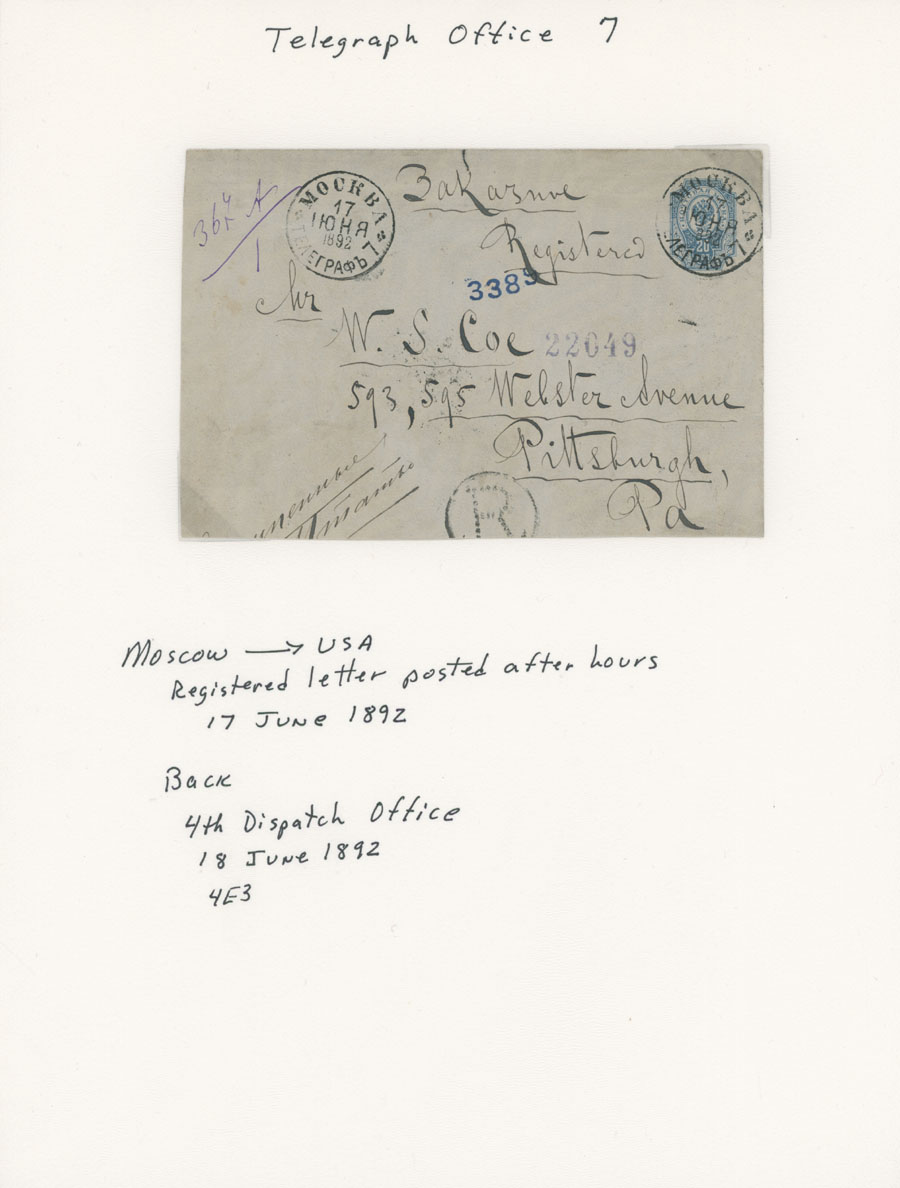 Telegraph Office 7
МОСКВА
17
ЮНЯ
1892
ТЕЛЕГРАФЪ 7
Заказное
МОСКВА
17
ЮНЯ
1892
ТЕЛЕГРАФЪ 7
20
Registered
3383
Mr
W. S. Coe 22049
593, 595 Webster Avenue
Pittsburgh,
Pa
R
Штаты
Moscow → USA
Registered letter posted after hours
17 June 1892
Back
4th Dispatch Office
18 June 1892
4E3